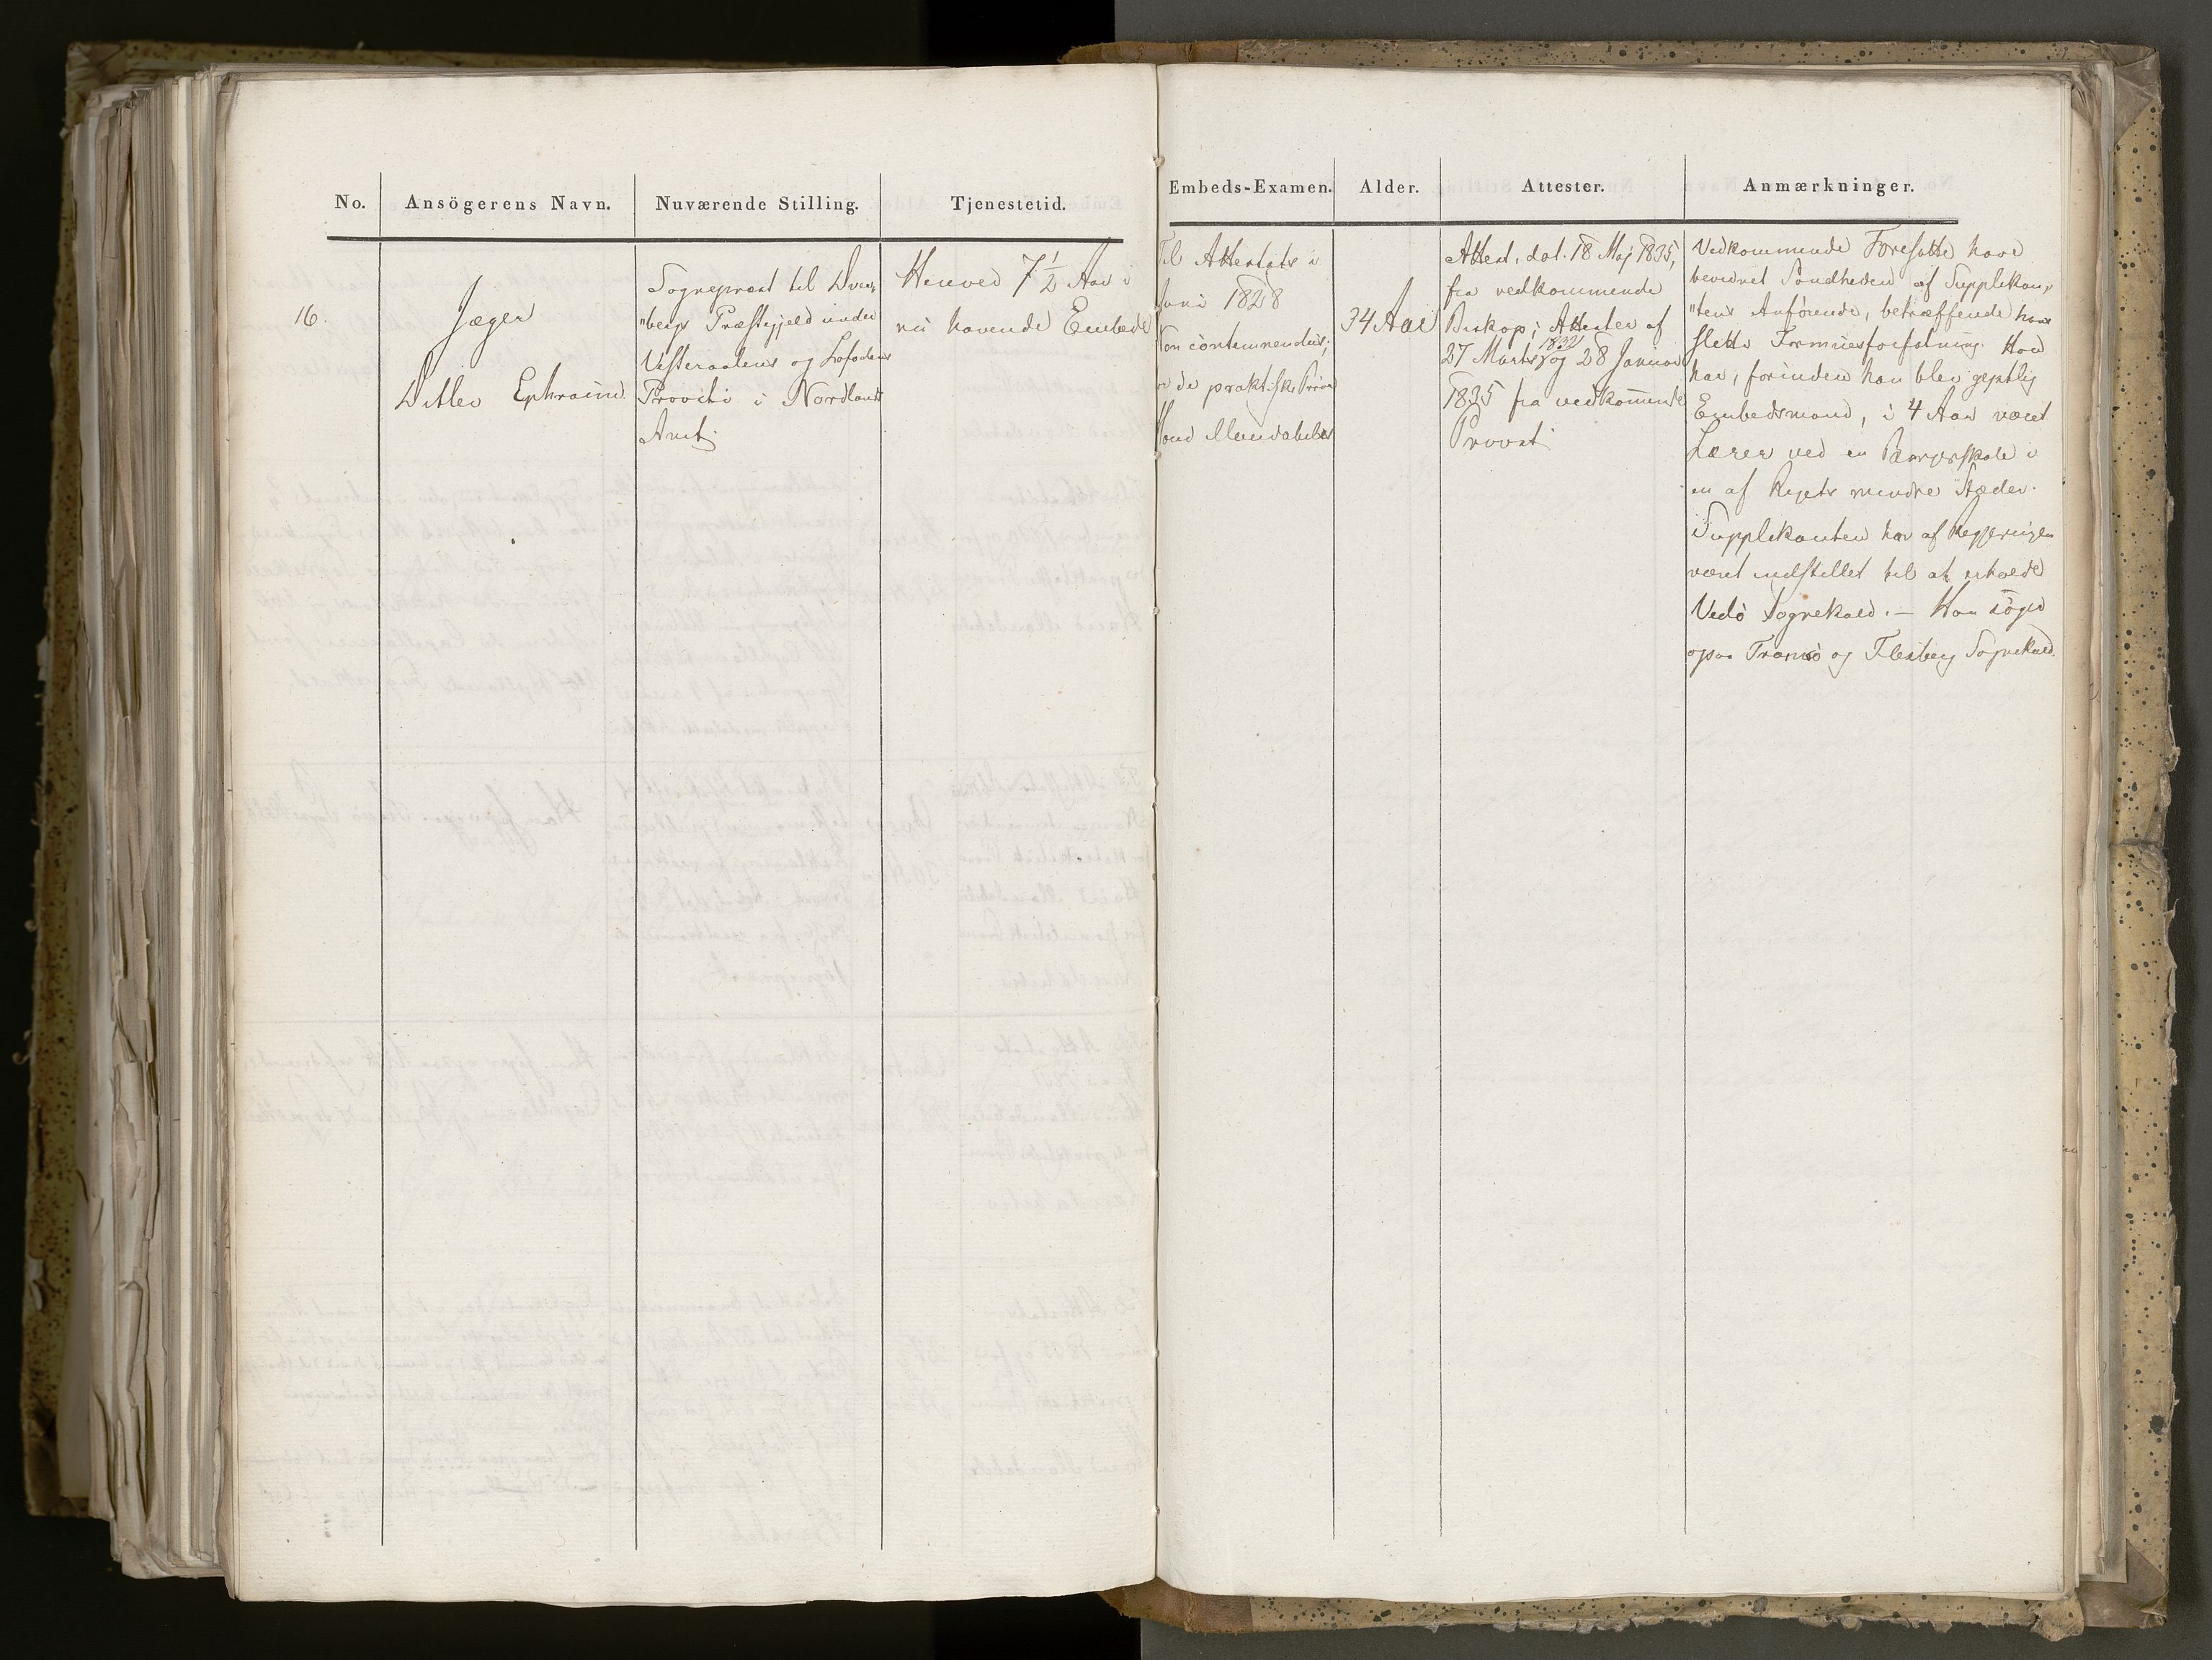 No.
Ansögerens Navn.
Nuværende Stilling.
Tjenestetid.
Embeds-Examen.
Alder.
Attester.
Anmærkninger.
16.
Jæger
Ditlev Ephraim
Sognepræst til Dver„
„bergs Præstegjeld under
Vesteraalens og Lofodens
Provsti i Nordlands
Amt
Henved 7 1/2 Aar i
nu havende Embede
Til Attestats i
Juni 1828
Non contemnendus;
de praktiske Prøver
Haud illaudabilis
34 Aar
Attest, dat. 18 Maj 1835,
fra vedkommende
Biskop; Attester af
27 Marts 1832 og 28 Januar
1835 fra vedkommende
Provst
Vedkommende Foresatte have
bevidnet Sandheden af Supplikan„
„tens Anførende, betræffende hans
slette Formuesforfatning. Han
har, forinden han blev gejstlig
Embedsmand, i 4 Aar været
Lærer ved en Borgerskole i
en af Rigets mindre Stæder.
Supplikanten har af Regjeringen
været indstillet til at erholde
Vedö Sognekald. — Han søger
ogsaa Tromsö og Flesberg Sognekald.